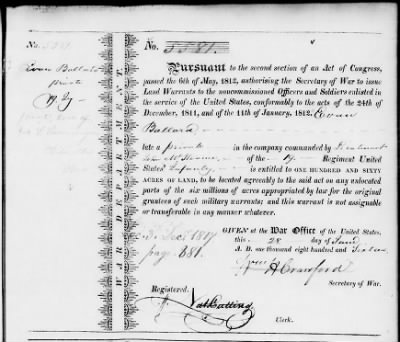 No. 5581.
Evan Ballard
private
19 Inf
WAR DEPARTMENT.
No. 5581.
Pursuant to the second section of an Act of Congress,
passed the 6th of May, 1812, authorising the Secretary of War to issue
Land Warrants to the noncommissioned Officers and Soldiers enlisted
in the service of the United States, conformably to the acts of the 24th of
December, 1811, and of the 11th of January, 1812, Evan
Ballard
late a private in the company commanded by Lieutenant
of the 19 Regiment United
States Infantry is entitled to ONE HUNDRED AND SIXTY
ACRES OF LAND, to be located agreeably to the said act on any unlocated
parts of the six millions of acres appropriated by law for the original
grantees of such military warrants; and this warrant is not assignable
or transferable in any manner whatever.
GIVEN at the War Office of the United States,
this 28 day of June
A. D. one thousand eight hundred and Sixteen
3 Dec 1817
page 681.
Wm H Crawford
Secretary of War.
Registered.
Nat Cutting
Clerk.